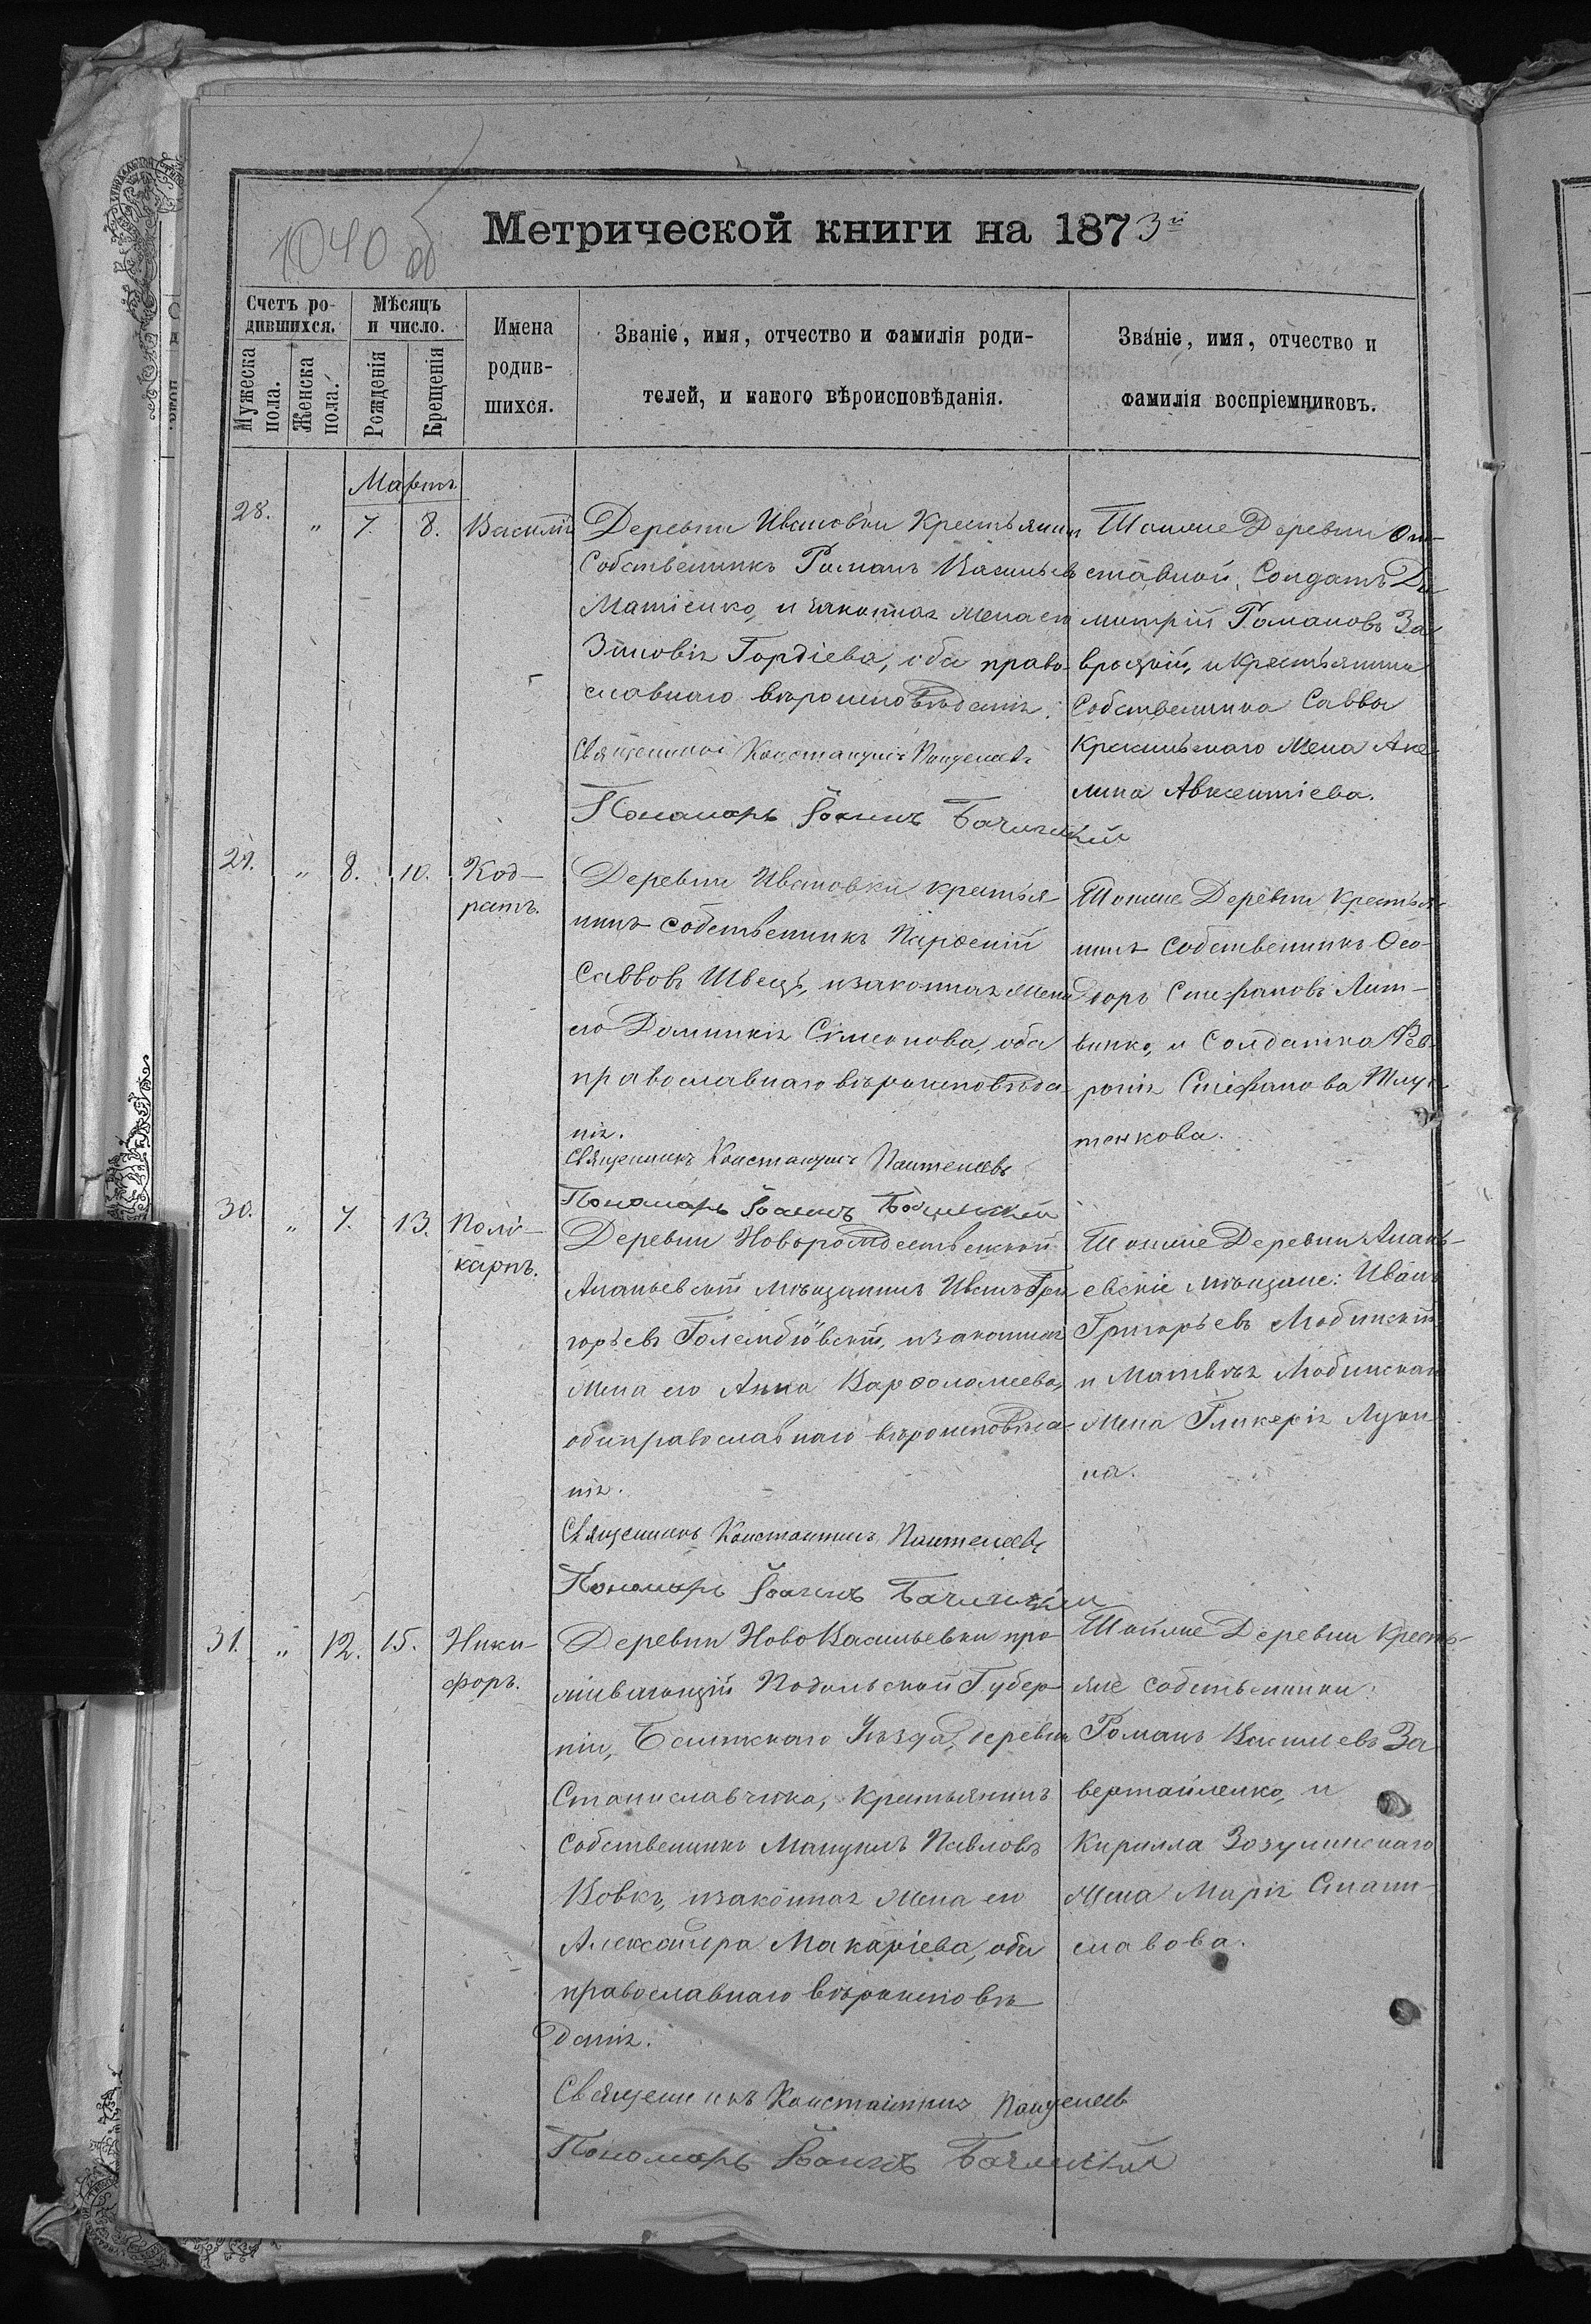 1040 об
Метрической книги на 1873й
Счетъ ро-
дившихся.
Мужеска
пола.
Женска
пола.
Мѣсяцъ
и число.
Рожденія
Крещенія
Имена
родив-
шихся.
Званіе, имя, отчество и фамилія роди-
телей, и какого вѣроисповѣданія.
Званіе, имя, отчество и
фамилія воспріемниковъ.
Мартъ
28. " 7. 8. Василій
Деревни Ивановки Крестьянинъ
Собственникъ Романъ Васильевъ
Матіенко, и законная жена его
Зиновія Гордіева, оба право-
славнаго вѣроисповѣданія.
Священникъ Константинъ Пантелеевъ
Пономарь Іоаннъ Бачинскій
Тойже Деревни От-
ставной Солдатъ Ди
митрій Романовъ За
вроцкій, и Крестьянина
Собственника Саввы
Красильнаго жена Аке
лина Авксентіева.
29. " 8. 10. Код-
ратъ.
Деревни Ивановки крестья-
нинъ собственникъ Парѳеній
Саввовъ Швецъ, и законная жена
его Домникія Симеонова, оба
православнаго вѣроисповѣда-
нія.
Священникъ Константинъ Пантелеевъ
Пономарь Іоаннъ Бачинскій
Тойже Деревни Крестья-
нинъ Собственникъ Ѳео-
доръ Стефановъ Лит-
винко, и Солдатка Фев-
ронія Стефанова
тенкова.
30. " 7. 13. Поли-
карпъ.
Деревни Новорождественской
Ананьевскій мѣщанинъ Иванъ Гри
горьевъ Голембіовскій, и законная
жена его Анна Варѳоломеева,
оба православнаго вѣроисповѣда-
нія.
Священникъ Константинъ Пантелеевъ
Пономарь Іоаннъ Бачинскій
Тойже Деревни Анань-
евскіе мѣщане: Иванъ
Григорьевъ Любинскій
и Матвѣя Любинскаго
жена Гликерія Луки
на.
31. " 12. 15. Ники-
форъ.
Деревни НовоВасильевки про
живающій Подольской Губер-
ніи, Балтскаго Уѣзда, деревни
Станиславчика, Крестьянинъ
Собственникъ Мануилъ Павловъ
Вовкъ, и законная жена его
Александра Макаріева, оба
православнаго вѣроисповѣ
данія.
Священникъ Константинъ Пантелеевъ
Пономарь Іоаннъ Бачинскій
Тойже Деревни Кресть-
яне собственники:
Романъ Васильевъ За
вертайленко, и
Кирилла Зозулинскаго
жена Марія Стани-
славова.